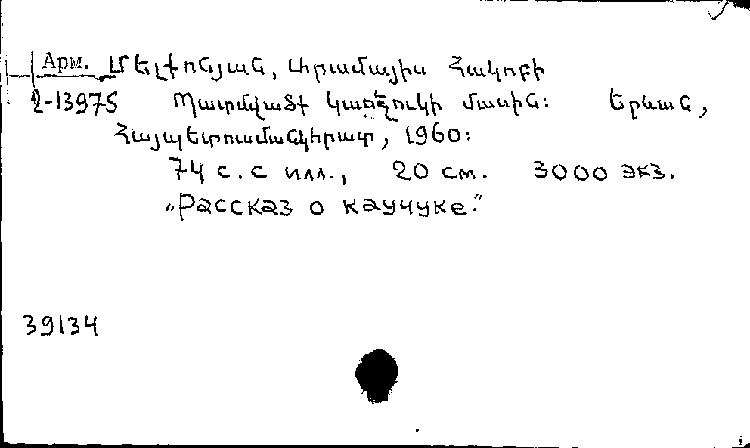 Арм. Մելքոնյան, Արամայիս Հակոբի
2-13975 Պատմվածք կաուչուկի մասին: Երևան,
Հայպետուսմանկհրատ, 1960:
74 с. с илл., 20 см. 3000 экз.
„Рассказ о каучуке."
39134